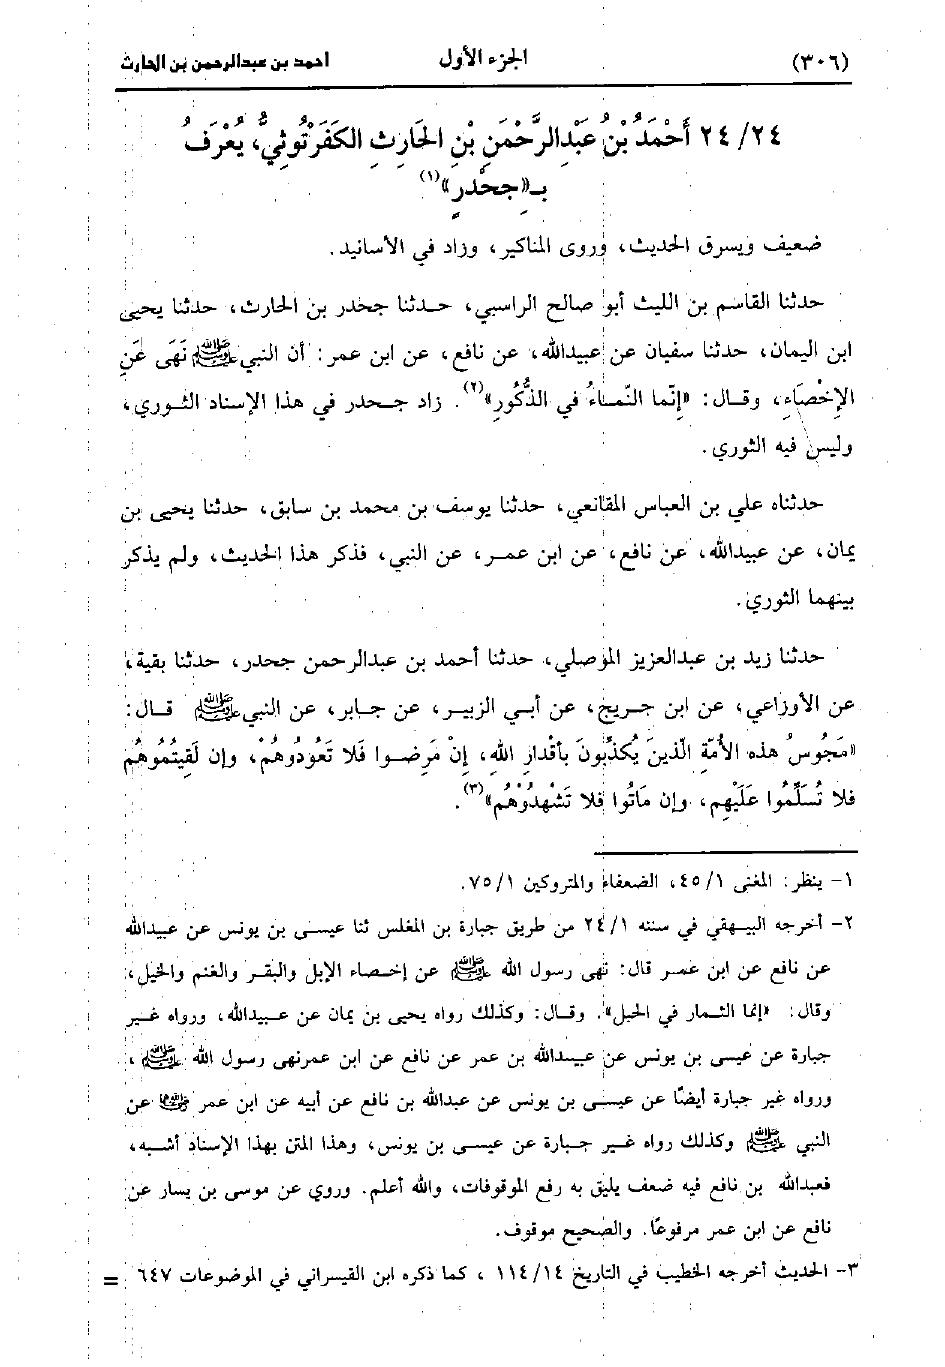 (٣٠٦) الجزء الأول احمد بن عبدالرحمن بن الحارث
٢٤/ ٢٤ أَحْمَدُ بْنُ عَبْدِالرَّحْمَنِ بْنِ الحَارِثِ الكَفَرْتُوثِيُّ، يُعْرَفُ
بـ«جَحْدَرٍ»(١)
ضعيف ويسرق الحديث، وروى المناكير، وزاد في الأسانيد.
حدثنا القاسم بن الليث أبو صالح الراسبي، حـدثنا جحدر بن الحارث، حدثنا يحيى
ابن اليمان، حدثنا سفيان عن عبيدالله، عن نافع، عن ابن عمر: أن النبي ﷺ نَهَى عَنِ
الإِخْصَاءِ، وقـال: «إِنَّما النَّمـاءُ في الذُّكُورِ»(٢). زاد جـحدر في هذا الإسناد الثـوري،
وليس فيه الثوري.
حدثناه علي بن العباس المقانعي، حدثنا يوسف بن محمد بن سابق، حدثنا يحيى بن
يمان، عن عبيدالله، عن نافع، عن ابن عمـر، عن النبي، فذكر هذا الحديث، ولم يذكر
بينهما الثوري.
حدثنا زيد بن عبدالعزيز الموصلي، حدثنا أحمد بن عبدالرحمن جحدر، حدثنا بقية،
عن الأوزاعي، عن ابن جـريج، عن أبي الزبيـر، عن جـابر، عن النبي ﷺ قـال:
«مَجُوسُ هذه الأُمَّةِ الَّذينَ يُكَذِّبُونَ بأَقْدارِ الله، إِنْ مَرِضـوا فَلا تَعُودُوهُمْ، وإن لَقِيتُمُوهُم
فلا تُسَلِّمُوا عَلَيْهِم، وإن مَاتُوا فلا تَشْهدُوْهُم»(٣).
١- ينظر: المغنى ٤٥/١، الضعفاء والمتروكين ٧٥/١.
٢- أخرجه البيـهقي في سننه ٢٤/١ من طريق جبارة بن المغلس ثنا عيسـى بن يونس عن عبيدالله
عن نافع عن ابن عمـر قال: نهى رسول الله ﷺ عن إخـصاء الإبل والبقـر والغنم والخيل،
وقال: «إنما الثـمار في الحبل». وقـال: وكذلك رواه يحيى بن يمان عن عـبيدالله، ورواه غيـر
جبارة عن عيسى بن يونس عن عبيـدالله بن عمر عن نافع عن ابن عمرنهى رسول الله ﷺ،
ورواه غير جبارة أيضًا عن عيسـى بن يونس عن عبدالله بن نافع عن أبيه عن ابن عمر ﷺ عن
النبي ﷺ وكذلك رواه غـير جـبارة عن عيسـى بن يونس، وهذا المتن بهذا الإسناد أشـبه،
فعبدالله بن نافع فيه ضعف يليق به رفع الموقوفات، والله أعلم. وروي عن موسى بن يسار عن
نافع عن ابن عمر مرفوعًا. والصحيح موقوف.
٣- الحديث أخرجه الخطيب في التاريخ ١١٤/١٤ ، كما ذكره ابن القيسراني في الموضوعات ٦٤٧ =